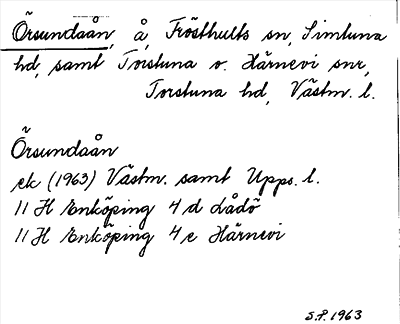 Örsundaån, å, Frösthults sn, Simtuna
hd, samt Torstuna o. Härnevi snr,
Torstuna hd, Västm. l.
Örsundaån
ek (1963) Västm. samt Upps. l.
11 H Enköping 4 d Lådö
11 H Enköping 4 e Härnevi
S.P. 1963